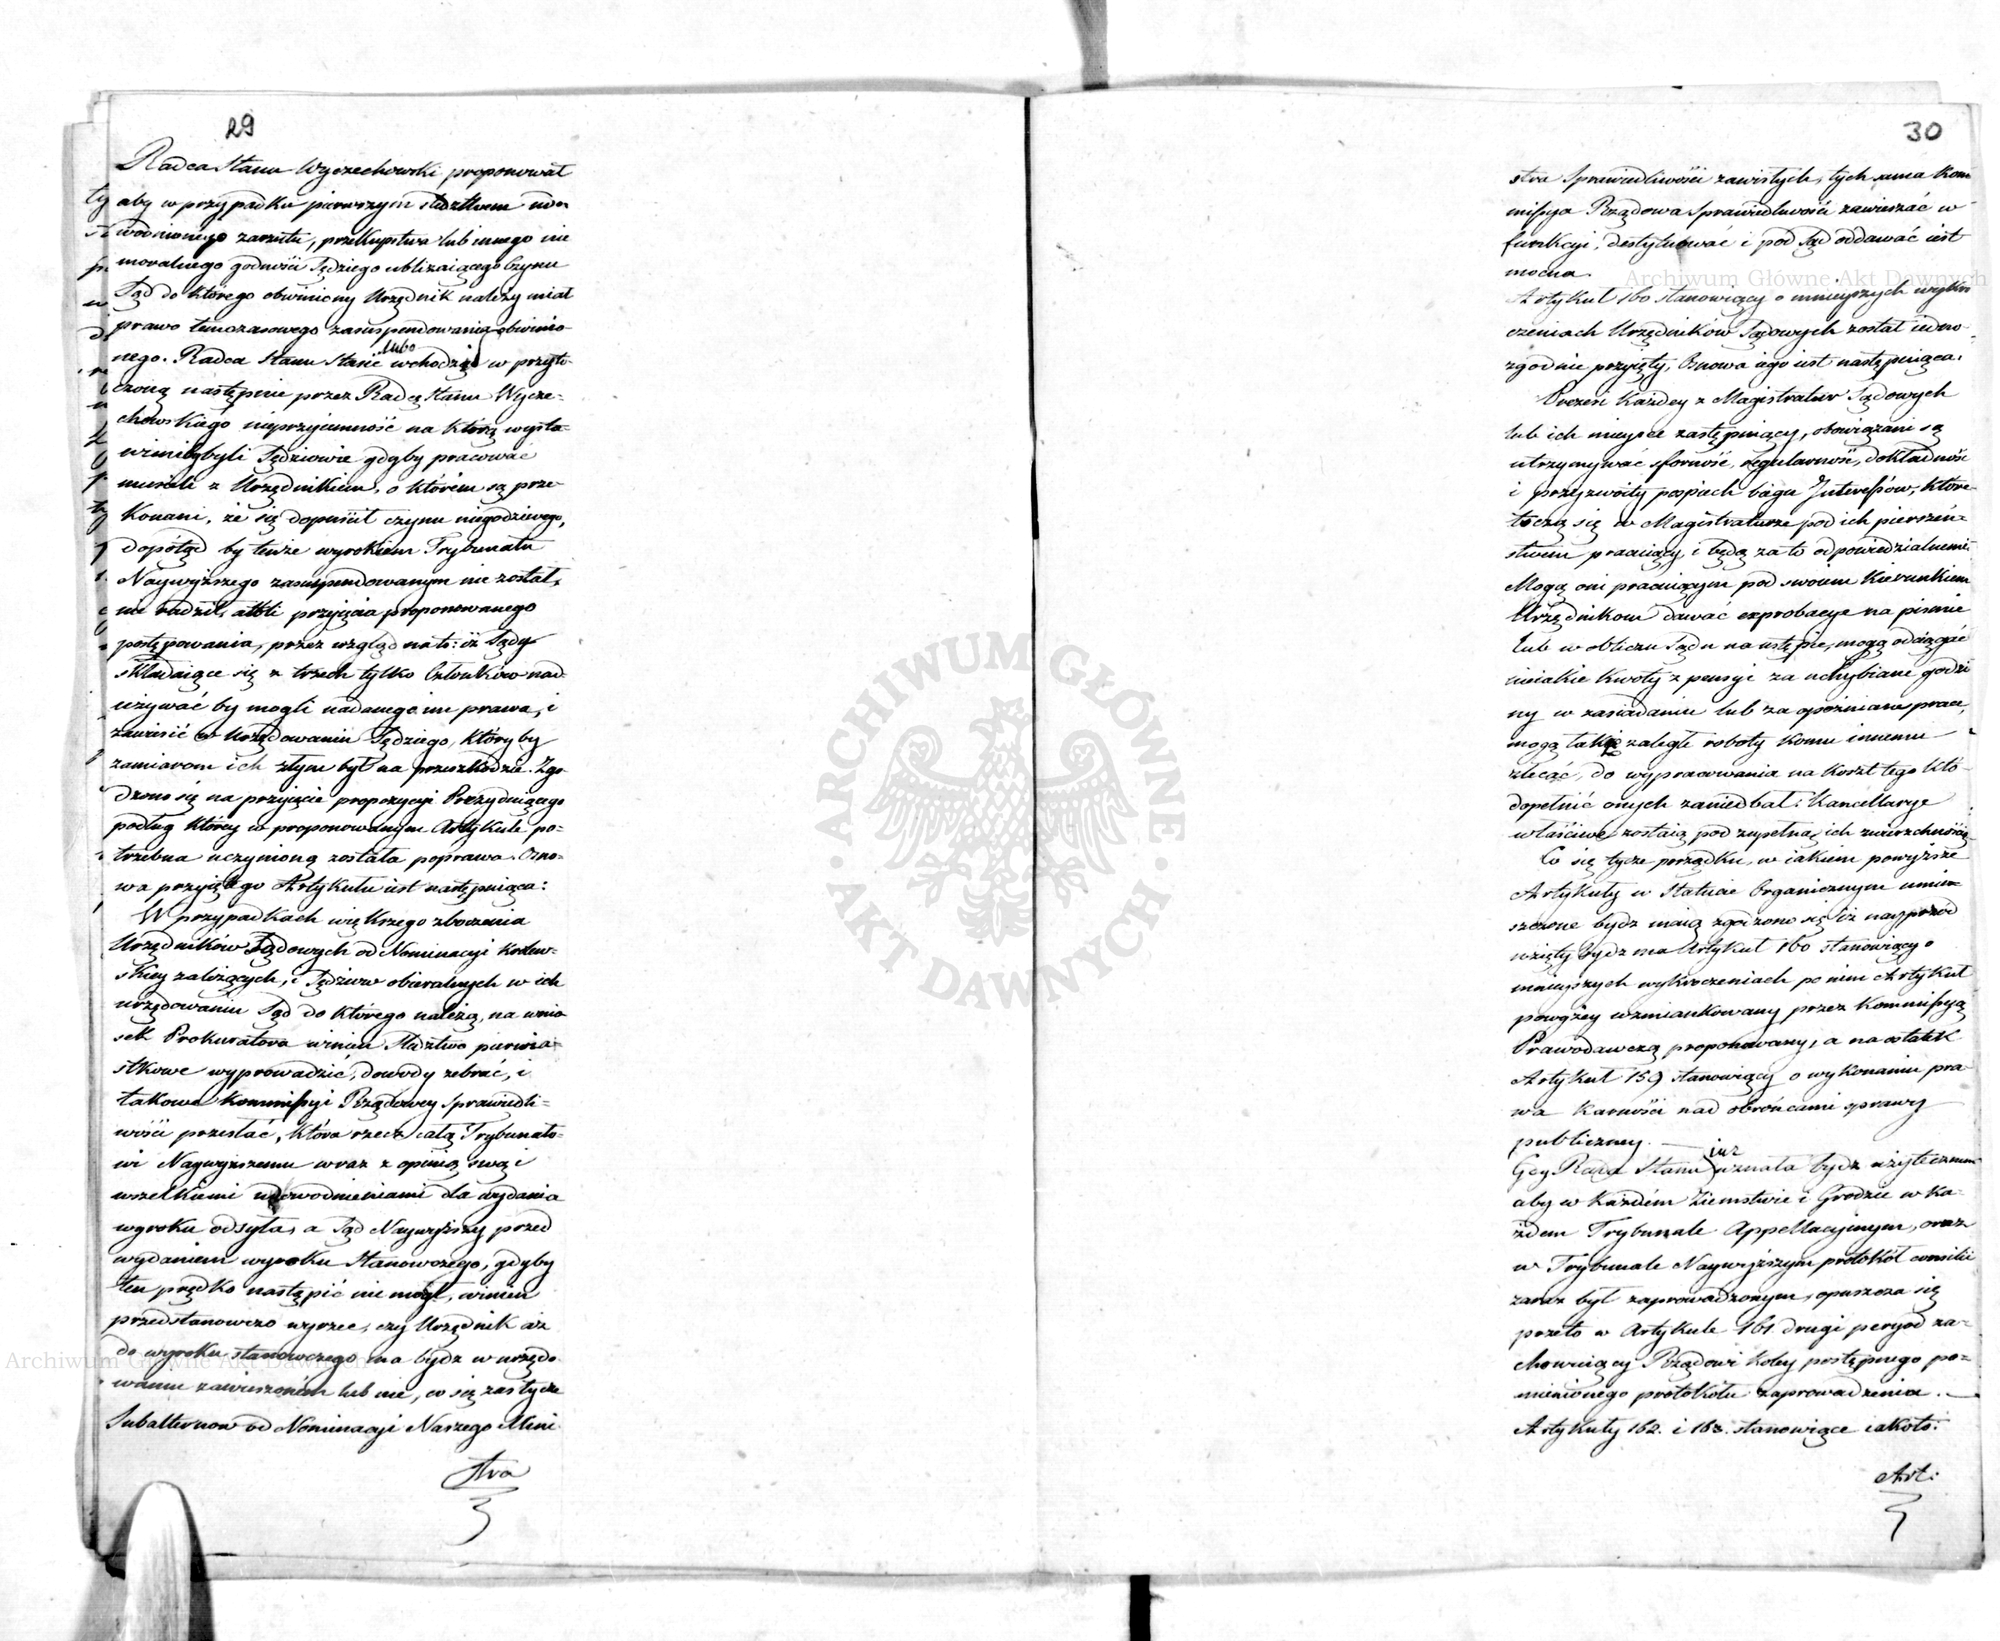 29
Radca Stanu Wyczechowski proponował
aby w przypadku pierwszym śledztwem udo-
wodnionego zarzutu, przekupstwa lub innego nie
moralnego godności Sędziego ubliżaiącego Czynu
Sąd do którego obwiniony Urzędnik należy miał
prawo tymczasowego zasuspendowania obwinio-
nego. Radca Stanu Staszic lubo wchodził w przyto-
czoną następnie przez Radcę Stanu Wycze-
chowskiego nieprzyiemność na którą wysta-
wieni byli Sędziowie gdyby pracować
musieli z Urzędnikiem, o którem są prze-
konani, że się dopuścił czynu niegodziwego,
dopókąd by tenże wyrokiem Trybunału
Naywyższego zasuspendowanym nie został,
nie radził atoli przyięcia proponowanego
postępowania, przez wzgląd na to: iż Sądy
składaiące się z trzech tylko Członków nad-
używać by mogli nadanego im prawa, i
zawiesić w Urzędowaniu Sędziego, któryby
zamiarom ich złym był na przeszkodzie. Zgo-
dzono się na przyięcie propozycyi Prezyduiącego
podług którey w proponowanym Artykule po-
trzebna uczynioną została poprawa. Osno-
wa przyiętego Artykułu iest następuiąca:
W przypadkach większego zboczenia
Urzędników Sądowych od Nominacyi Królew-
skiey zależących, i Sędziów obieralnych w ich
urzędowaniu Sąd do którego należą, na wnio-
sek Prokuratora winien śledztwo pierwia-
stkowe wyprowadzić, dowody zebrać, i
takowe Kommissyi Rządowey Sprawiedli-
wości przesłać, która rzecz całą Trybunało-
wi Naywyższemu wraz z opinią swą i
wszelkiemi udowodnieniami dla wydania
wyroku odsyła, a Sąd Naywyższy przed
wydaniem wyroku Stanowczego, gdyby
ten prędko nastąpić nie mógł, winien
przedstanowczo wyrzec, czy Urzędnik aż
do wyroku stanowczego ma bydź w urzędo-
waniu zawieszonem lub nie, co się zaś tycze
Subalternow od Nominacyi Naszego Mini-
stra
30
stra Sprawiedliwości zawisłych, tych sama Kom-
missya Rządowa Sprawiedliwości zawieszać w
funkcyi, destytuować i pod Sąd oddawać iest
mocna.
Artykuł 160 stanowiący o mnieyszych wykro-
czeniach Urzędników Sądowych został iedno-
zgodnie przyięty, Osnowa iego iest następuiąca:
Prezesi każdey z Magistratur Sądowych
lub ich mieysce zastępuiący, obowiązani są
utrzymywać sforność, regularność, dokładność
i przyzwoity pospiech biegu Interessów, które
toczą się w Magistraturze pod ich pierszeń-
stwem pracuiący, i będą za to odpowiedzialnemi.
Mogą oni pracuiącym pod swoim kierunkiem
Urzędnikom dawać exprobacye na piśmie
lub w obliczu Sądu na ustępie, mogą odciągać
nieiakie kwoty z pensyi za uchybiane godzi-
ny w zasiadaniu lub za opoźniane prace,
mogą także zaległe roboty komu innemu
zlecać, do wypracowania na koszt tego któ-
dopełnić onych zaniedbał. Kancellarye
właściwe zostaią pod zupełną ich zwierzchnością.
Co się tycze porządku, w iakiem powyższe
Artykuły w Statucie Organicznym umie-
szczone bydź maią zgodzono się iż nayprzód
wzięty bydź ma Artykuł 160 stanowiący o
mnieyszych wykroczeniach po nim Artykuł
powyżey wzmiankowany przez Kommissyą
Prawodawczą proponowany, a na ostatek
Artykuł 159 stanowiący o wykonaniu pra-
wa karności nad obrońcami sprawy
publiczney.
Gdy Rada Stanu iuż uznała bydź użytecznem
aby w każdém Ziemstwie i Grodzie w ka-
żdem Trybunale Appellacyinym, oraz
w Trybunale Naywyższym protokół consilii
zaraz był zaprowadzonym, opuszcza się
przeto w Artykule 161 drugi peryod za-
chowuiący Rządowi koley postępnego po-
mienionego protokołu zaprowadzenia.
Artykuły 162. i 163. stanowiące iakoto:
Art:
ARCHIWUM GŁÓWNE AKT DAWNYCH
Archiwum Główne Akt Dawnych
Archiwum Główne Akt Dawnych